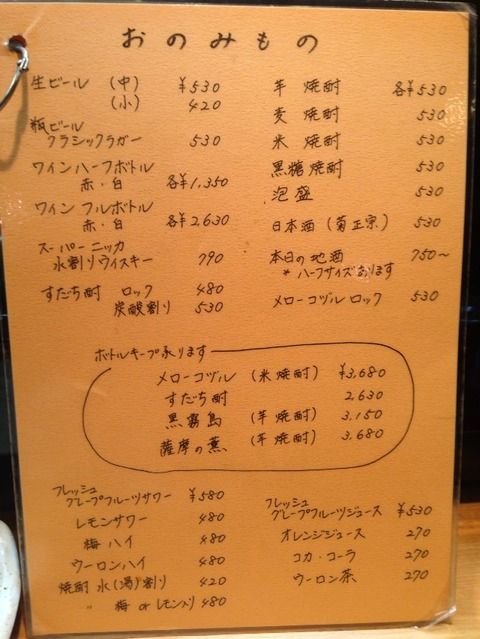 おのみもの
生ビール (中) ¥530
(小) 420
瓶ビール
クラシックラガー 530
ワインハーフボトル
赤・白 各¥1,350
ワイン フルボトル
赤・白 各¥2630
スーパーニッカ
水割りウィスキー 790
すだち酎 ロック 480
炭酸割り 530
芋 焼酎 各¥530
麦 焼酎 530
米 焼酎 530
黒糖焼酎 530
泡盛 530
日本酒 (菊正宗) 530
本日の地酒 750〜
*ハーフサイズあります
メローコヅル ロック 530
ボトルキープ承ります
メローコヅル (米焼酎) ¥3,680
すだち酎 2,630
黒霧島 (芋焼酎) 3,150
薩摩の薫 (芋焼酎) 3,680
フレッシュ
グレープフルーツサワー ¥580
レモンサワー 480
梅ハイ 480
ウーロンハイ 480
焼酎 水(湯)割り 420
〃 梅 or レモン入り 480
フレッシュ
グレープフルーツジュース ¥530
オレンジジュース 270
コカ・コーラ 270
ウーロン茶 270